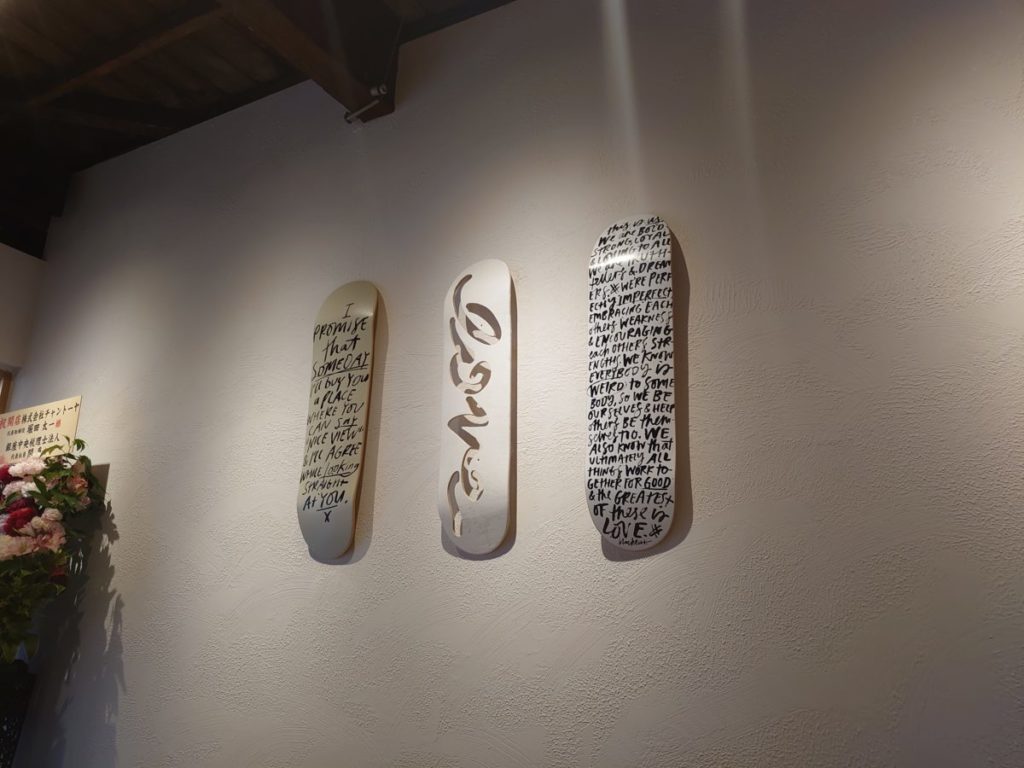 祝開店 株式会社チャントーヤ
I
PROMISE
that
SOMEDAY
I'll BUY YOU
a PLACE
WHERE YOU
CAN SAY
"NICE VIEW"
& I'LL AGREE
WHILE looking
STRAIGHT
AT YOU.
X
this is us
We are BOLD
STRONG
TO ALL
& DREAM
ERS * WE'RE PERF
ECTLY IMPERFECT
EMBRACING EACH
others WEAKNESS
& ENCOURAGING
each others STR
ENGTHS. WE KNOW
EVERYBODY is
WEIRD TO SOME
BODY, SO WE BE
OURSELVES & HELP
others BE them
selves TOO. WE
ALSO KNOW that
ultimately ALL
THINGS WORK TO-
GETHER FOR GOOD
& the GREATEST
OF these is
LOVE. *